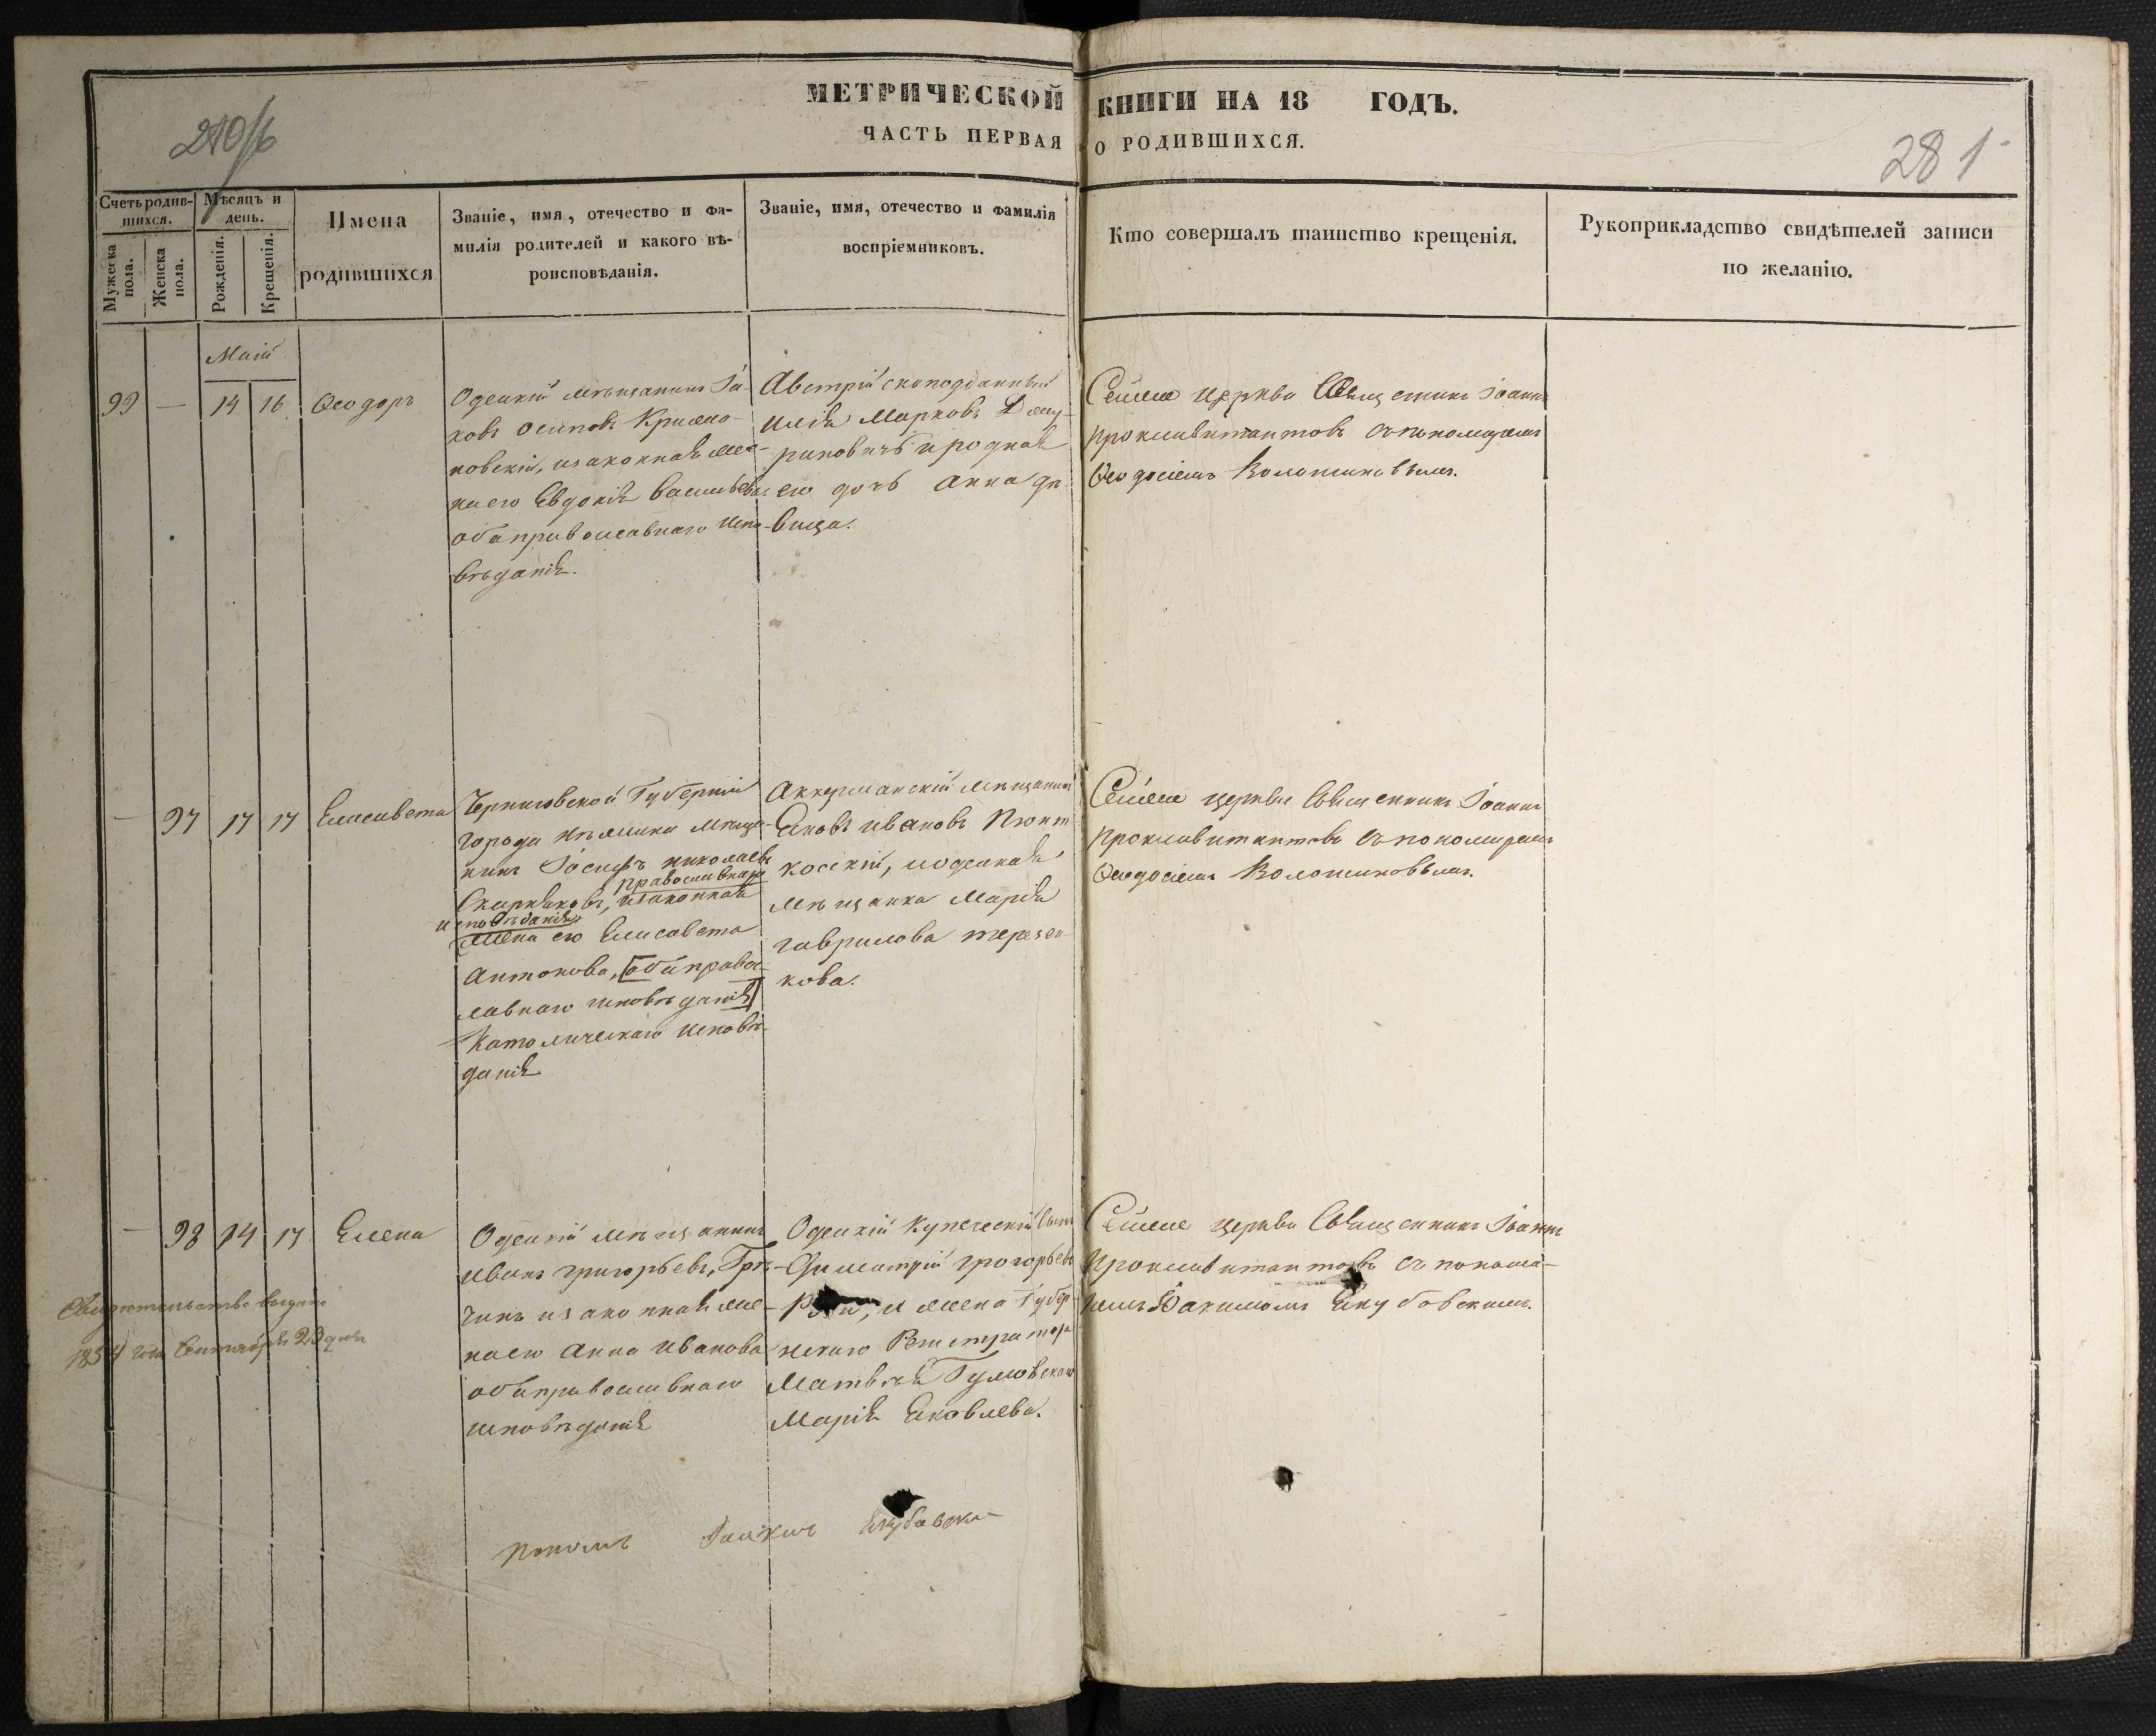 МЕТРИЧЕСКОЙ КНИГИ НА 18 ГОДЪ.
ЧАСТЬ ПЕРВАЯ О РОДИВШИХСЯ.
281
Счетъ родившихся.
Мужеска пола.
Женска пола.
Мѣсяцъ и день.
Рожденія.
Крещенія.
Имена
родившихся
Званіе, имя, отечество и фа-
милія родителей и какого вѣ-
роисповѣданія.
Званіе, имя, отечество и фамилія
воспріемниковъ.
Кто совершалъ таинство крещенія.
Рукоприкладство свидѣтелей записи
по желанію.
Маій
99 — 14 16 Ѳеодоръ
Одескій мѣщанинъ Іа-
ковъ Осиповъ
новскій, изаконная же-
на его Евдокія Васильева
оба православнаго испо-
вѣданія.
Австрійскоподданный
Илія Марковъ
и родная
его дочь Анна дѣ-
вица.
Сей церкви Священникъ Іоаннъ
съ пономаремъ
Ѳеодосіемъ Волошиновымъ.
— 97 17 17 Елисавета
Черниговской Губерніи
города Нѣжина мѣща-
нинъ Іосифъ Николаевъ
православнаго
изаконная
исповѣданія
жена его Елисавета
Антонова, оба правос-
лавнаго исповѣданія
Католическаго исповѣ-
данія
Аккерманскій мѣщанинъ
Яковъ Ивановъ
иодеская
мѣщанка Марія
Гаврилова терезен-
кова.
Сей церкви Священникъ Іоаннъ
съ пономаремъ
Ѳеодосіемъ Волошиновымъ.
— 98 14 17 Елена
Одескій мѣщанинъ
Иванъ Григорьевъ, Гре-
чинъ изаконная же-
на его Анна Иванова
оба православнаго
исповѣданія
Одескій Купеческій Сынъ
Димитрій Григорьевъ
и жена Губер-
нскаго Регистратора
Матвѣя Гумовскаго
Марія Яковлева.
Сей церкви Священникъ Іоаннъ
съ понома-
ремъ Іоакимомъ Якубовскимъ.
Свидетельство выдано
1854 года Сентября 23 дня